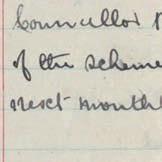 Councillor
of the scheme
next month